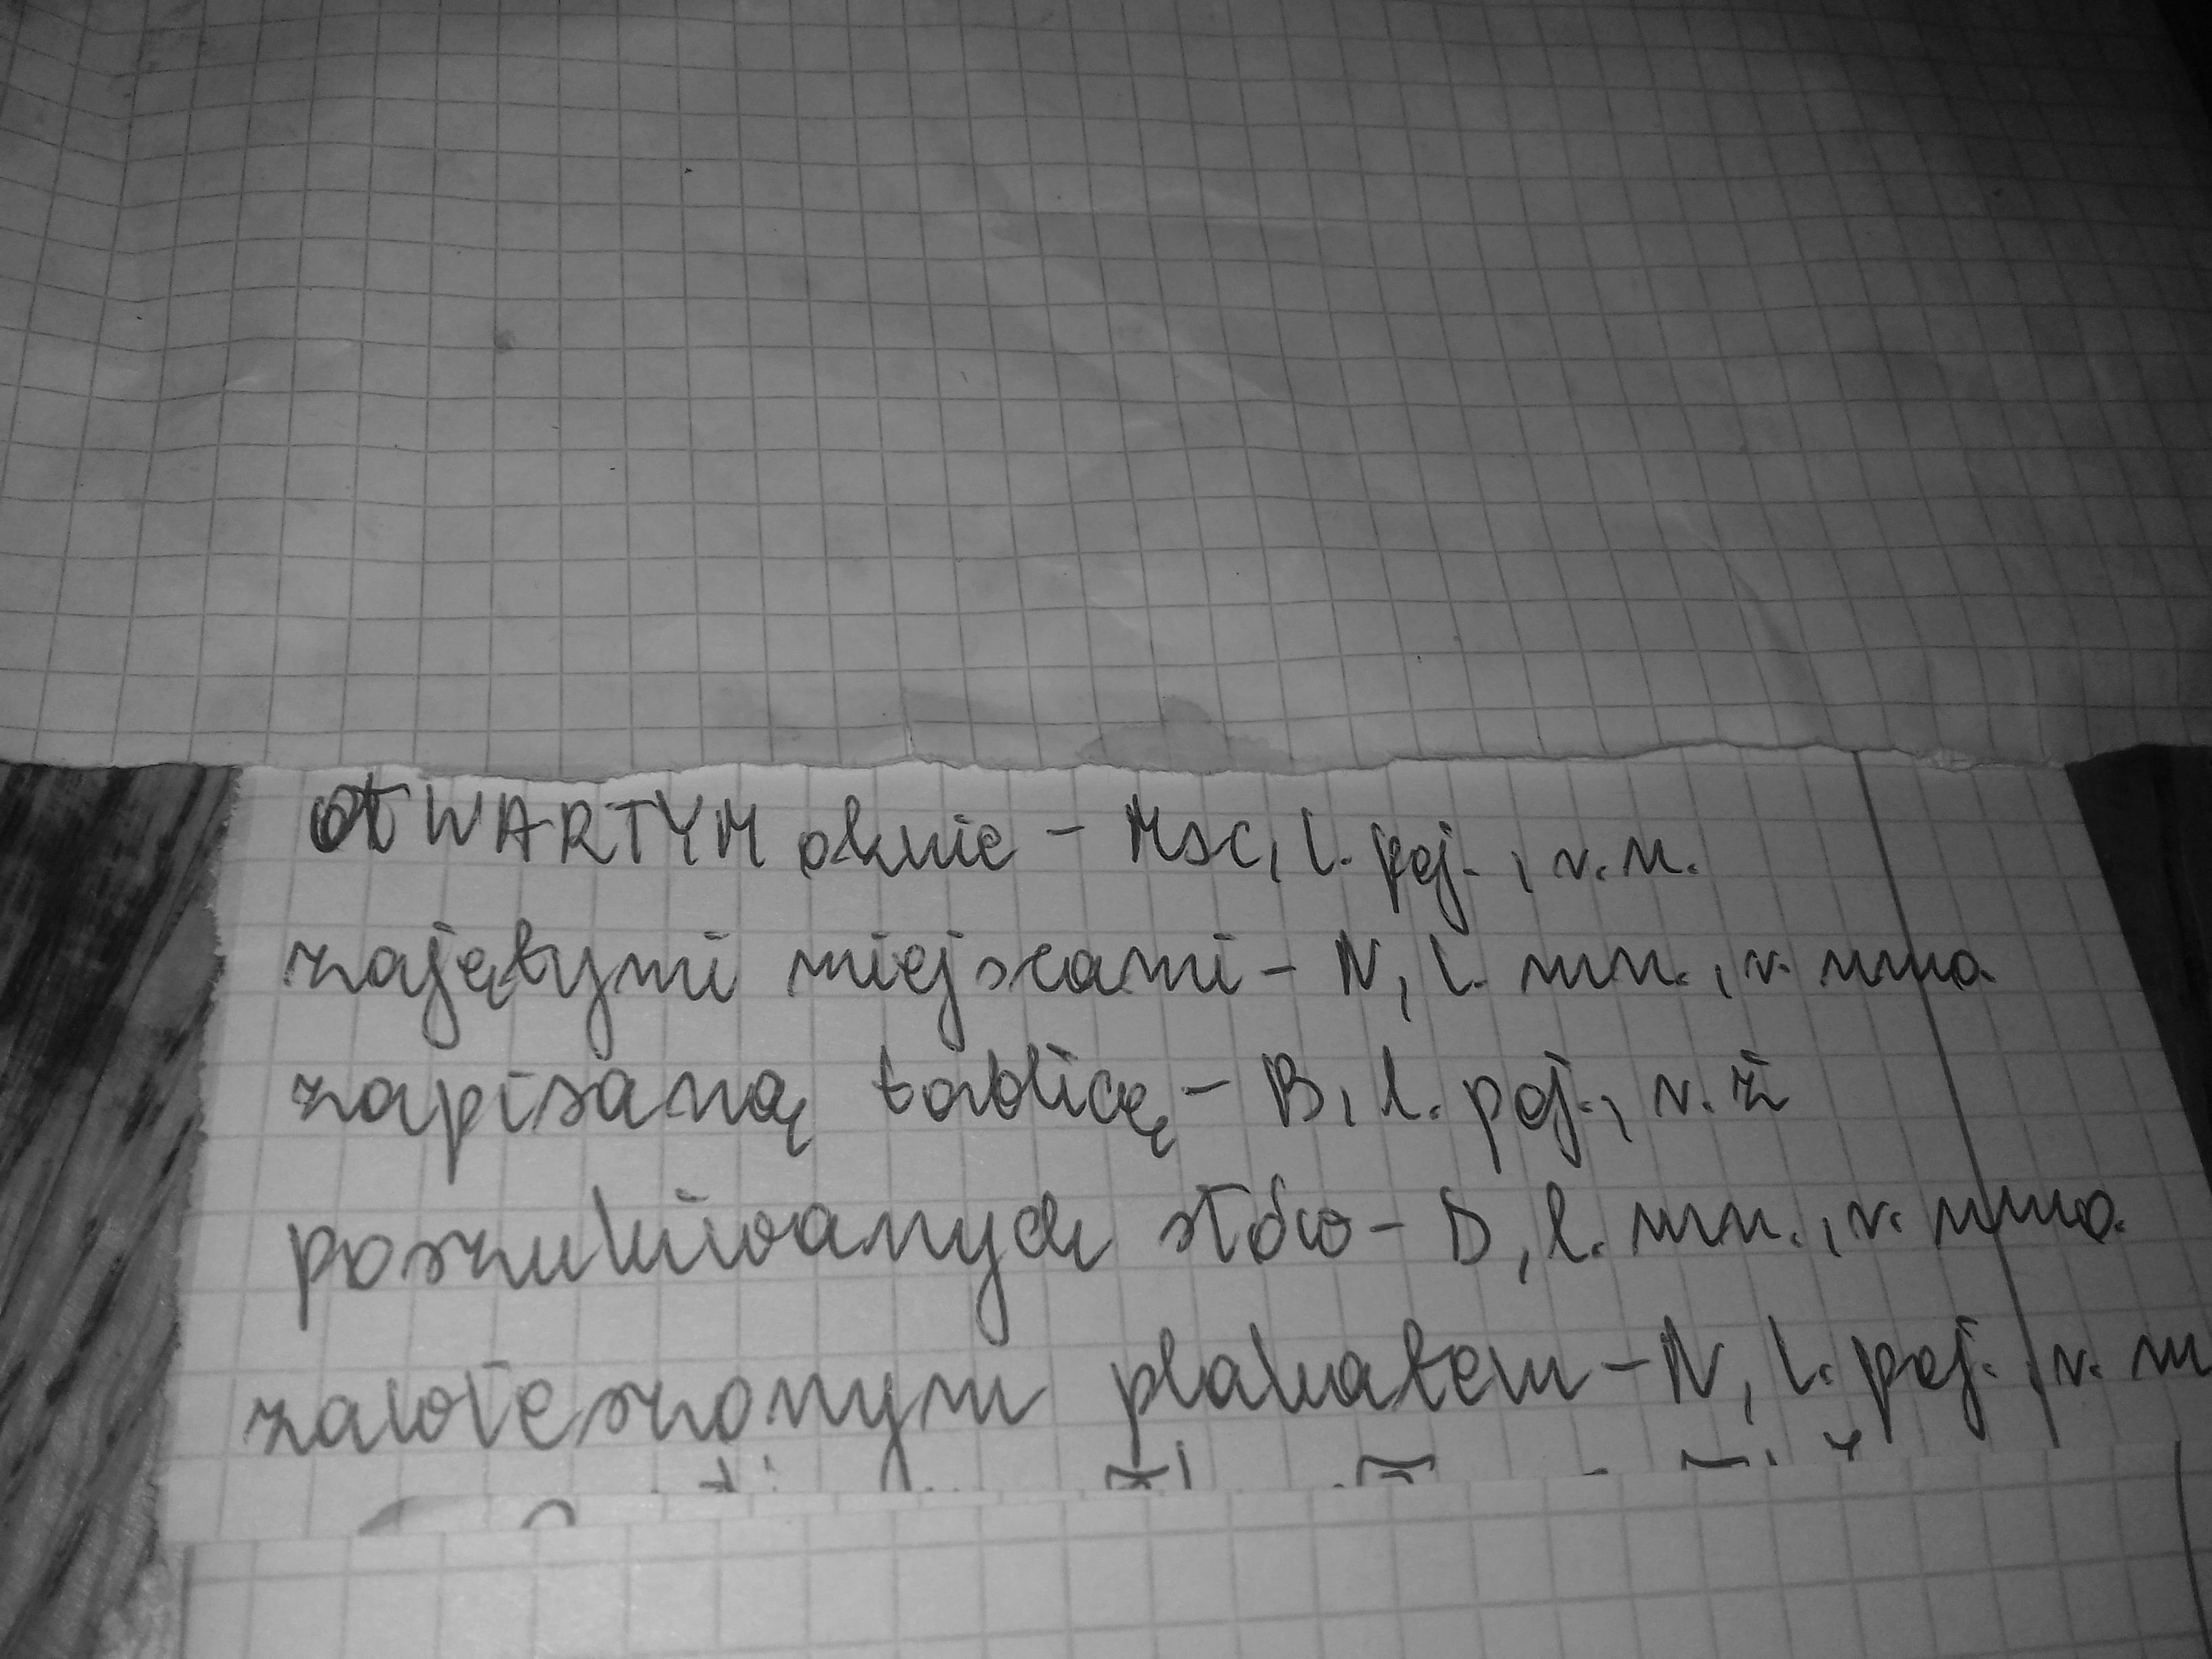 otWARTYM oknie - Msc, l. poj., r. n.
zajętymi miejscami - N, l. mn., r. nmo.
zapisaną tablicę - B, l. poj., r. ż
poszukiwanych słów - D, l. mn., r. nmo.
zawieszonym plakatem - N, l. poj., r. m